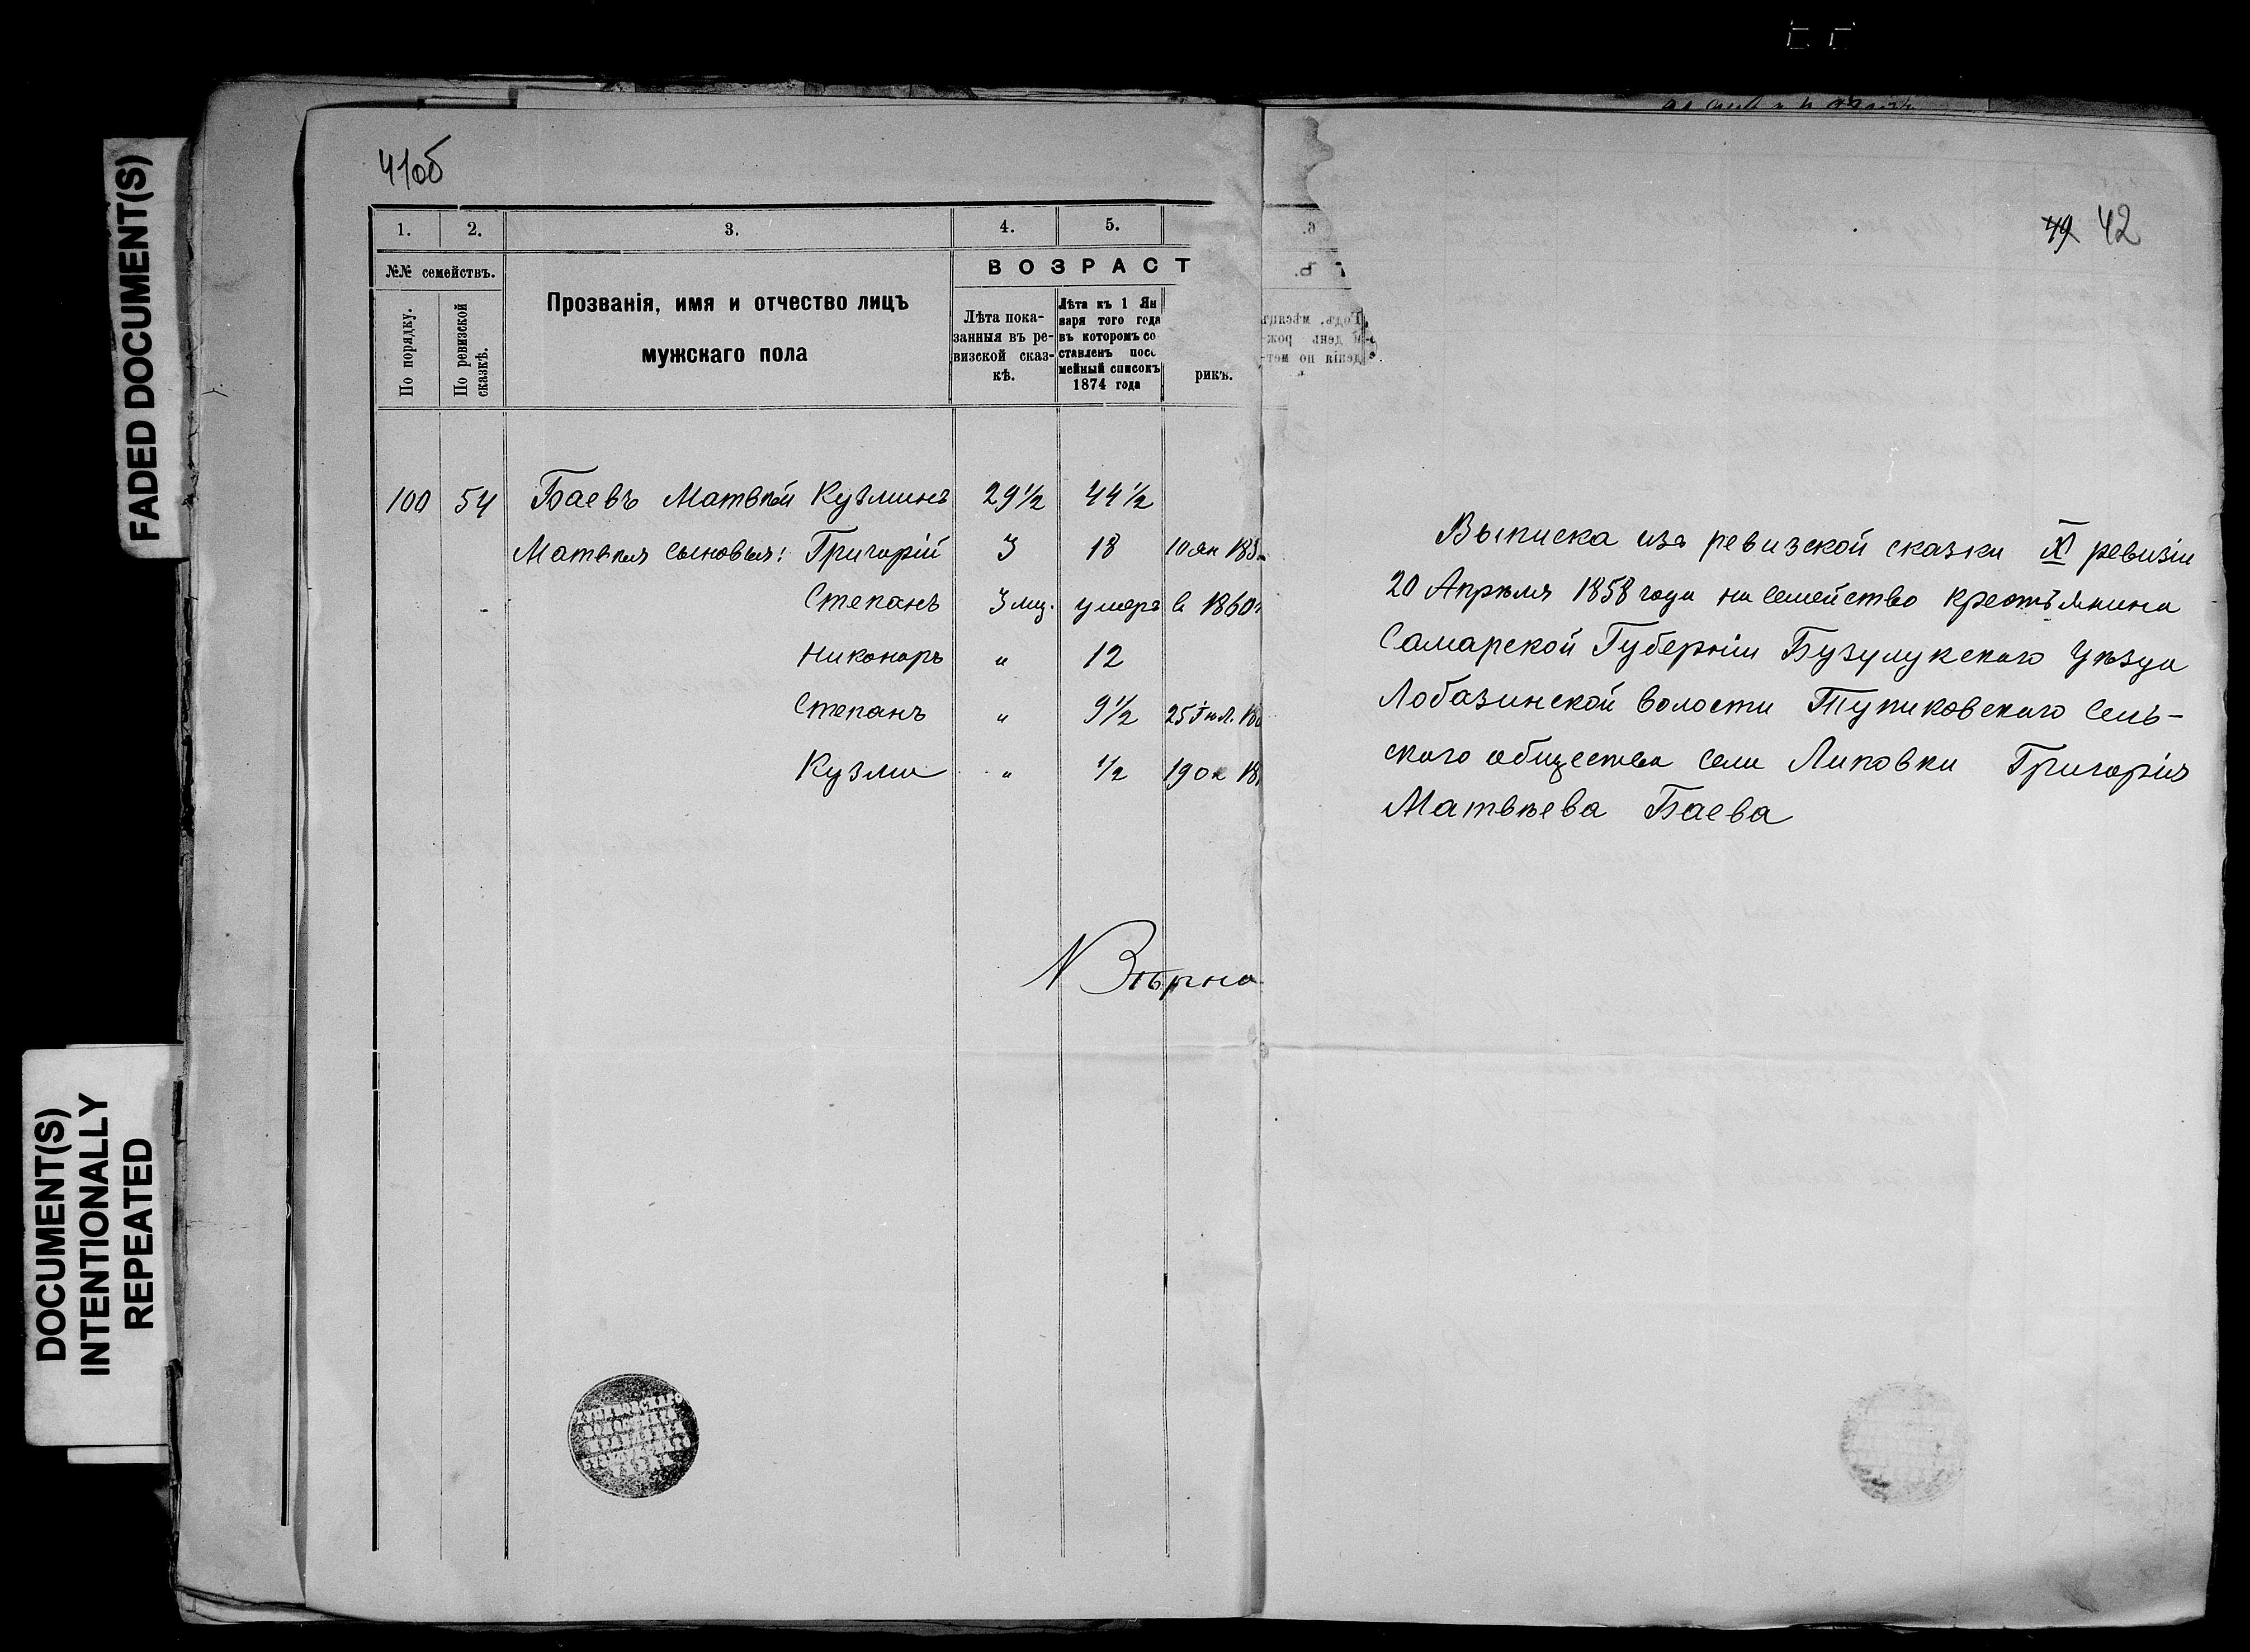 FADED DOCUMENT(S)
DOCUMENT(S)
INTENTIONALLY
REPEATED
41об
1. 2. 3. 4. 5.
№№ семействъ.
По порядку.
По ревизской
сказкѣ.
Прозванія, имя и отчество лицъ
мужскаго пола
ВОЗРАСТ
Лѣта пока-
занныя въ ре-
визской сказ-
кѣ.
Лѣта къ 1 Ян
варя того года
въ которомъ со
ставленъ посе
мейный списокъ
1874 года
рикъ.
100 54 Баевъ Матвѣй Кузминъ 29½ 44½
Матвѣя сыновья: Григорій 3 18 10 ян 185
Степанъ 3 мц. умеръ в 1860г
Никоноръ " 12
Степанъ " 9½ 25 Іюл. 18
Кузма " ½ 19 ок 18
Вѣрно
6.
Годъ, мѣсяцъ
и день рож-
денія по мет-
49 42
Выписка изъ ревизской сказки X ревизіи
20 Апрѣля 1858 года на семейство крестьянина
Самарской Губерніи Бузулукскаго Уѣзда
Лобазинской волости Тупиковскаго сель-
скаго общества села Липовки Григорія
Матвѣева Баева